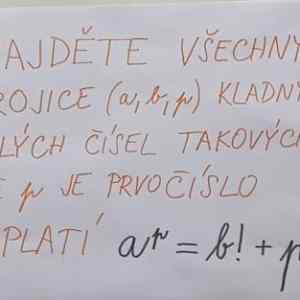 AJDĚTE VŠECHNY
ROJICE (a, b, p) KLADNÝ
LÝCH ČÍSEL TAKOVÝCH
E p JE PRVOČÍSLO
PLATÍ a^p = b! + p